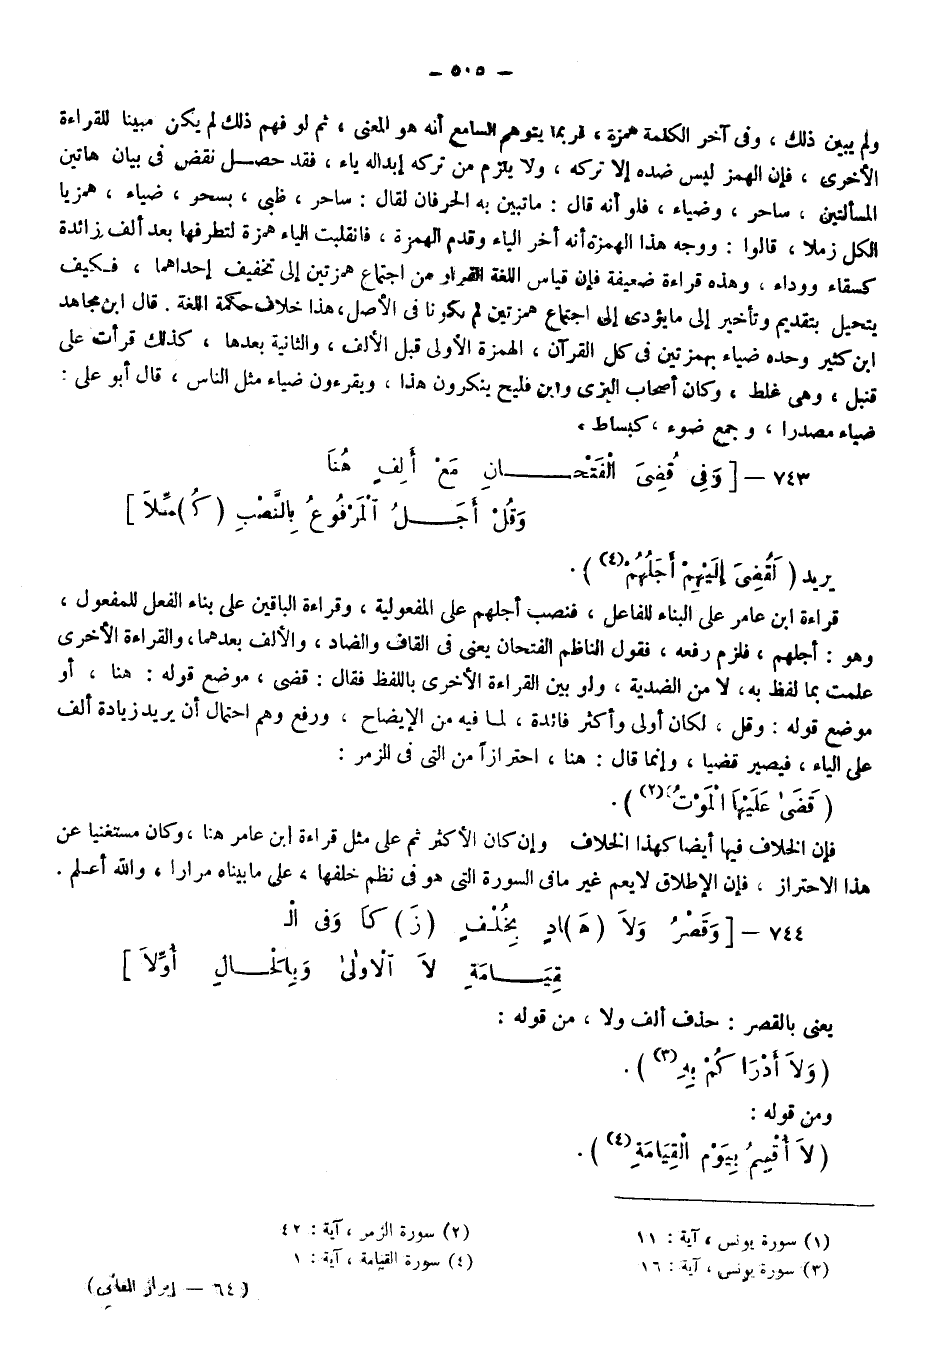 — ٥٠٥ —
ولم يبين ذلك ، وفى آخر الكلمة همزة ، فربما يتوهم السامع أنه هو المعنى ، ثم لو فهم ذلك لم يكن مبينا للقراءة
الأخرى ، فإن الهمز ليس ضده إلا تركه ، ولا يلزم من تركه إبداله ياء ، فقد حصل نقض فى بيان هاتين
المسألتين ، ساحر ، وضياء ، فلو أنه قال : ماتبين به الحرفان لقال : ساحر ، ظبى ، بسحر ، ضياء ، همزيا
الكل زملا ، قالوا : ووجه هذا الهمزة أنه أخر الياء وقدم الهمزة ، فانقلبت الياء همزة لتطرفها بعد ألف زائدة
كسقاء ورداء ، وهذه قراءة ضعيفة فإن قياس اللغة الفرار من اجتماع همزتين إلى تخفيف إحداهما ، فكيف
يتحيل بتقديم وتأخير إلى مايؤدى إلى اجتماع همزتين لم يكونا فى الأصل، هذا خلاف حكمة اللغة . قال ابن مجاهد
ابن كثير وحده ضياء بهمزتين فى كل القرآن ، الهمزة الأولى قبل الألف ، والثانية بعدها ، كذلك قرأت على
قنبل ، وهى غلط ، وكان أصحاب البزى وابن فليح ينكرون هذا ، ويقرءون ضياء مثل الناس ، قال أبو على :
ضياء مصدرا ، و جمع ضوء ، كبساط ،
٧٤٣ — [ وَفِي قُضِىَ الْفَتْحَـــانِ مَعْ أَلِفٍ هُنَا
وَقُلْ أَجَــلُ الْمَرْفُوعُ بِالنَّصْبِ (كُ)مِّلَا ]
يريد ( لَقُضِىَ إِلَيْهِمْ أَجَلُهُمْ(٤) ) .
قراءة ابن عامر على البناء للفاعل ، فنصب أجلهم على المفعولية ، وقراءة الباقين على بناء الفعل للمفعول ،
وهو : أجلهم ، فلزم رفعه ، فقول الناظم الفتحان يعنى فى القاف والضاد ، والألف بعدهما، والقراءة الأخرى
علمت بما لفظ به، لا من الضدية ، ولو بين القراءة الأخرى باللفظ فقال : قضى ، موضع قوله : هنا ، أو
موضع قوله : وقل ، لكان أولى وأكثر فائدة ، لما فيه من الإيضاح ، ورفع وهم احتمال أن يريد زيادة ألف
على الياء ، فيصير قضيا ، وإنما قال : هنا ، احترازاً من التى فى الزمر :
( قَضَىٰ عَلَيْهَا الْمَوْتَ(٢) ) .
فإن الخلاف فيها أيضا كهذا الخلاف وإن كان الأكثر ثم على مثل قراءة ابن عامر هنا ، وكان مستغنيا عن
هذا الاحتراز ، فإن الإطلاق لايعم غير مافى السورة التى هو فى نظم خلفها ، على مابيناه مرارا ، والله أعلم .
٧٤٤ — [ وَقَصْرُ وَلَا (هَـ)ادٍ بِخُلْفٍ (زَ)كَا وَفى الْـ
قِيَـــامَةِ لَا الْاولَىٰ وَبِالْحَـــالِ أُوِّلَا ]
يعنى بالقصر : حذف ألف ولا ، من قوله :
( وَلَا أَدْرَاكُمْ بِهِ(٣) ) .
ومن قوله :
( لَا أُقْسِمُ بِيَوْمِ الْقِيَامَةِ(٤) ) .
(١) سورة يونس ، آية : ١١
(٢) سورة الزمر ، آية : ٤٢
(٣) سورة يونس ، آية : ١٦
(٤) سورة القيامة ، آية : ١
( ٦٤ — إبراز المعانى )